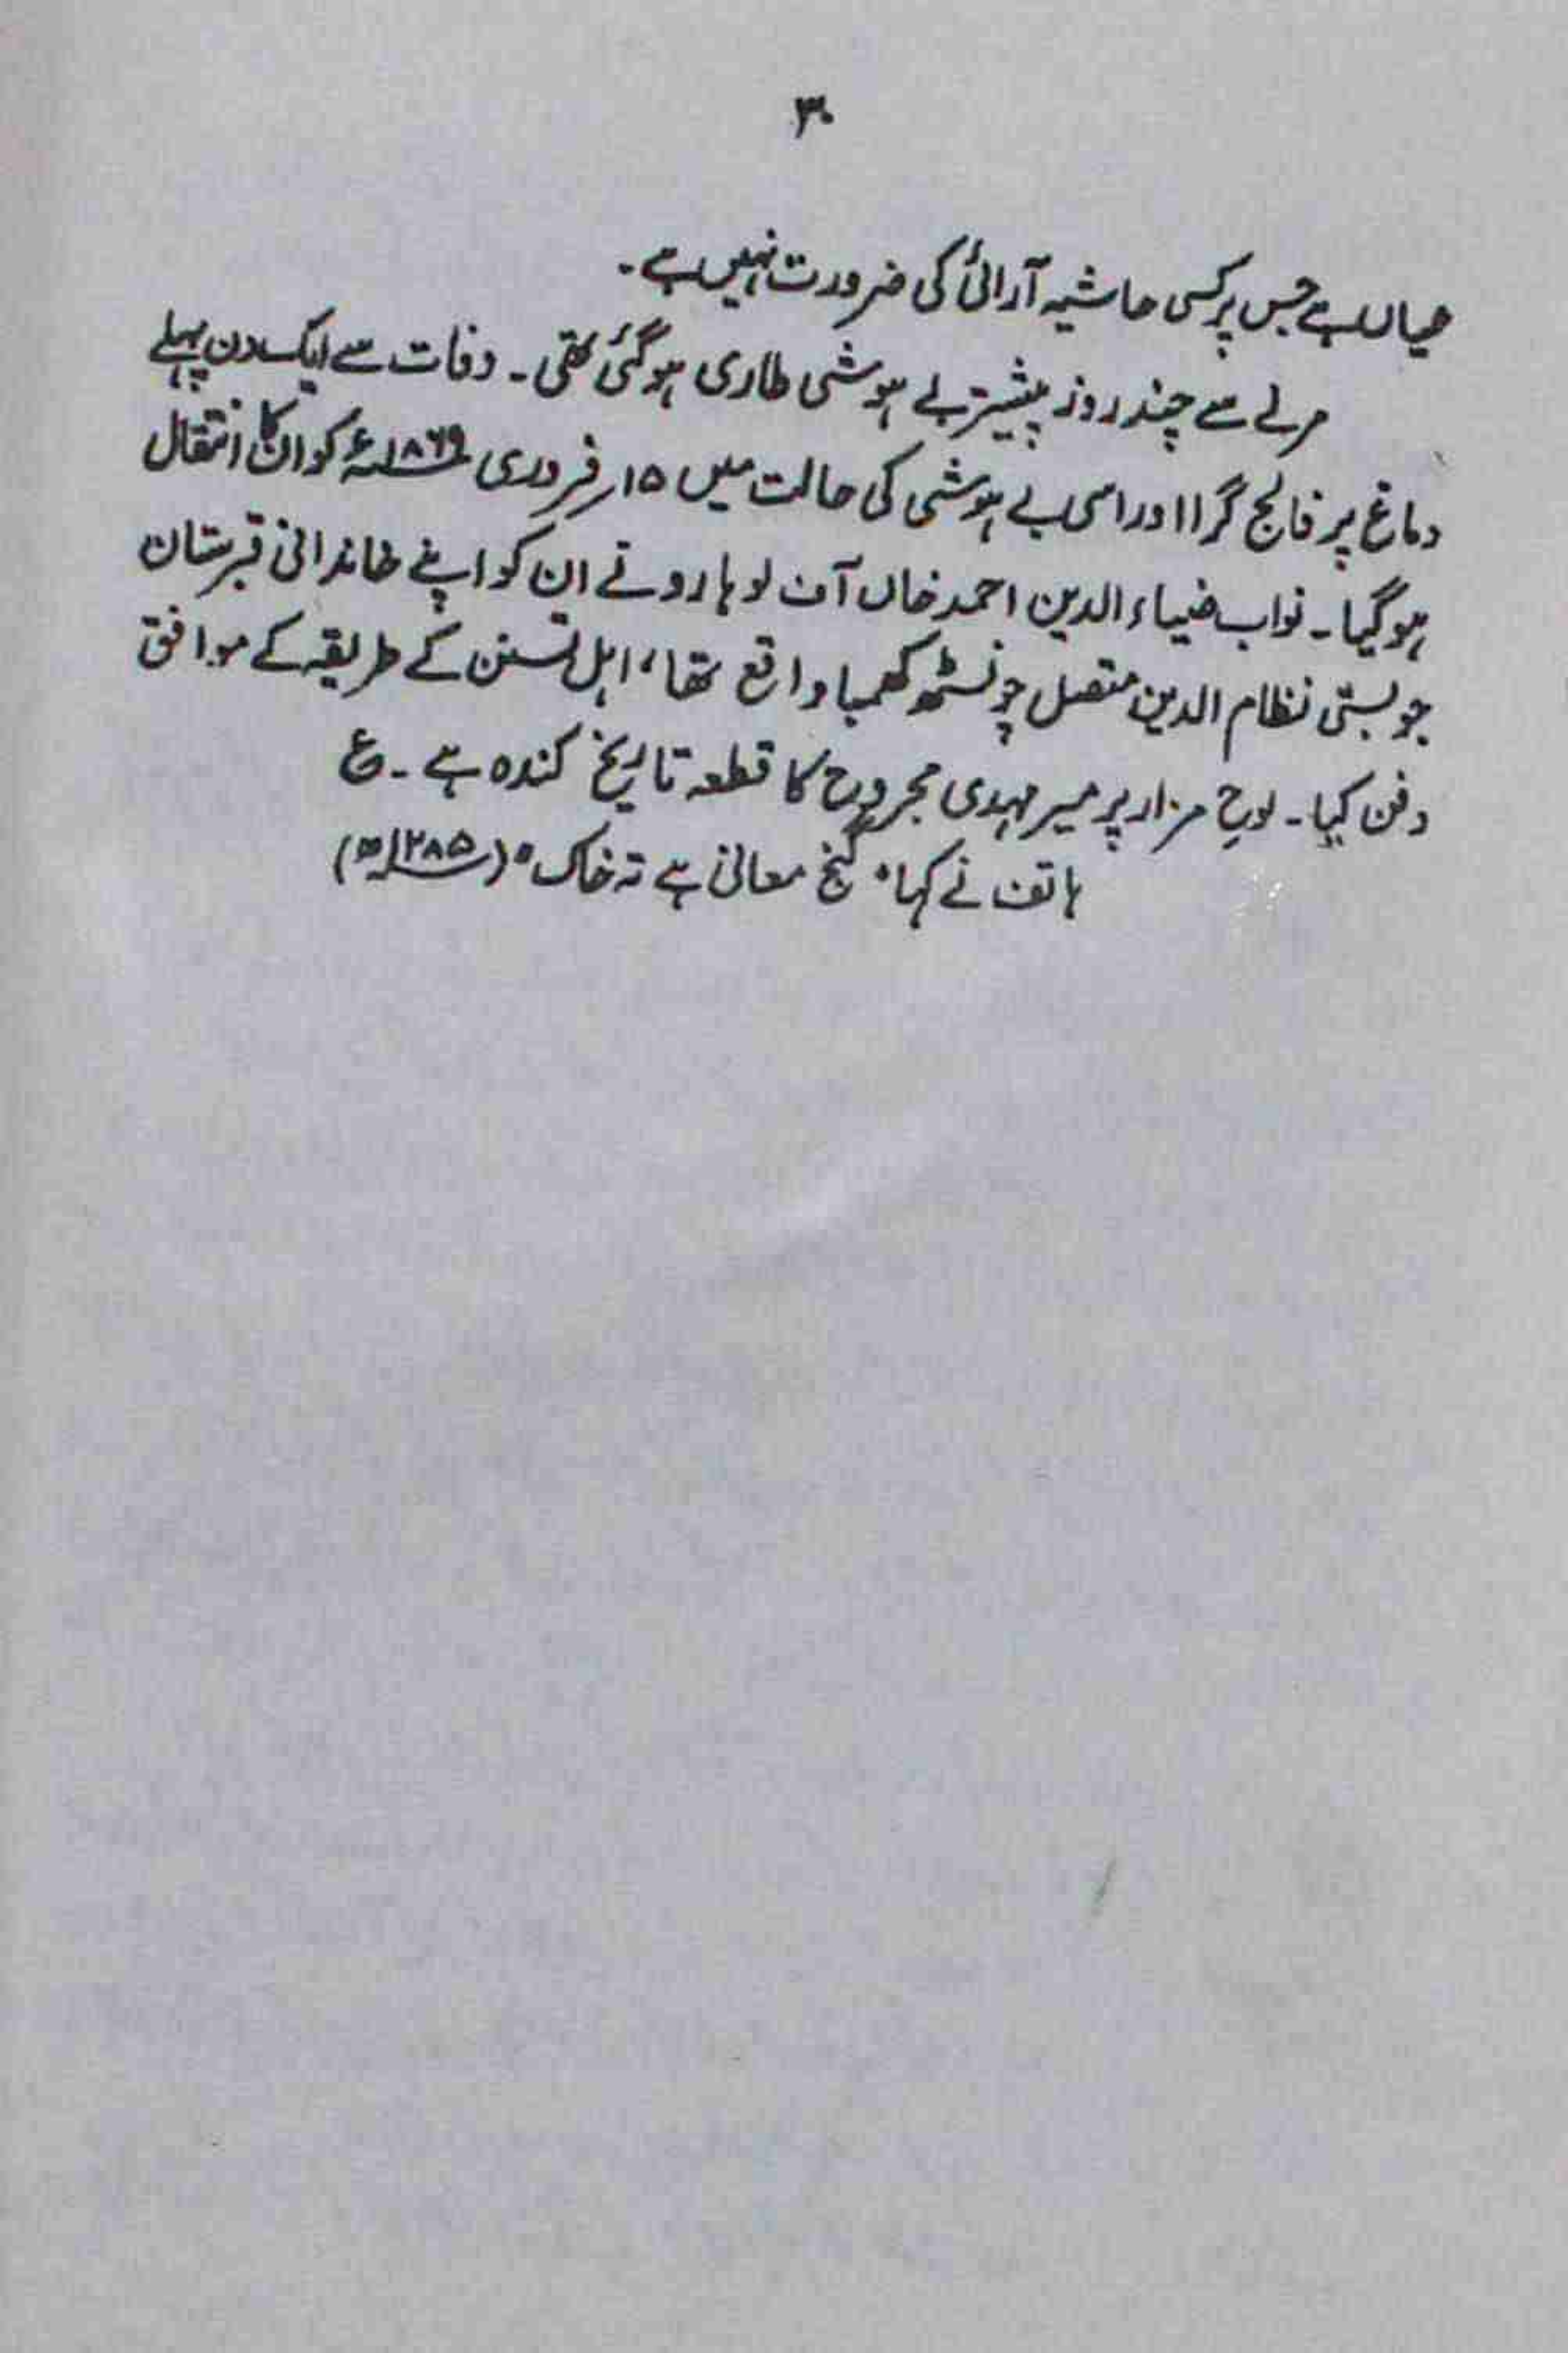 ۳۰
عیاں ہے جس پر کسی حاشیہ آرائی کی ضرورت نہیں ہے۔
مرنے سے چند روز پیشتر بے ہوشی طاری ہو گئی تھی۔ وفات سے ایک دن پہلے
دماغ پر فالج گرا اور اسی بے ہوشی کی حالت میں ۱۵ر فروری ۱۸۶۹ء کو ان کا انتقال
ہو گیا۔ نواب ضیاء الدین احمد خاں آف لوہارو نے ان کو اپنے خاندانی قبرستان
جو بستی نظام الدین متصل چونسٹھ کھمبا واقع تھا، اہل تسنن کے طریقہ کے موافق
دفن کیا۔ لوح مزار پر میر مہدی مجروح کا قطعہ تاریخ کندہ ہے۔ ع
ہاتف نے کہا "گنج معانی ہے تہ خاک" (۱۲۸۵ھ)